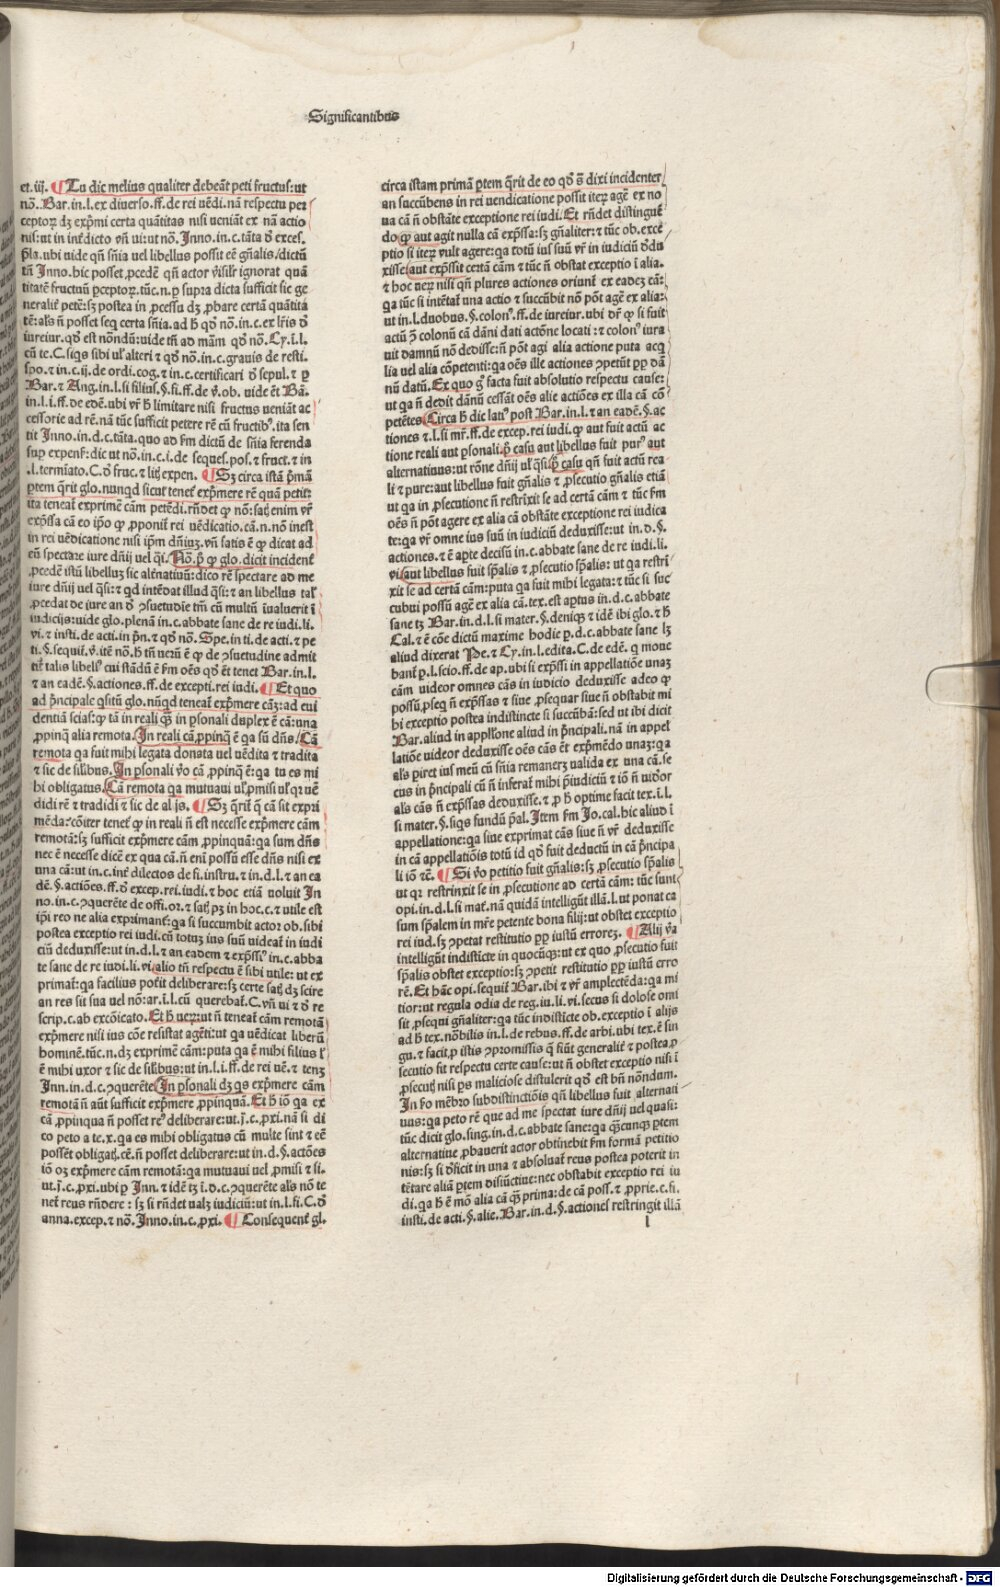 Significantibus
et.iij. ¶ Tu dic melius qualiter debeāt peti fructus:ut
nō. Bar.in.l.ex diuerso.ff.de rei uēdi.nā respectu per
ceptoꝝ dꝫ exp̄mi certa quātitas nisi ueniāt ex nā actio
nis:ut in int̄dicto vñ ui:ut nō. Inno.in.c.tāta ō exces.
p̄la.ubi uide qñ sñia uel libellus possit eē gñalis/dictū
tñ Inno.hic posset ꝓcedē qñ actor visil'r ignorat quā
titatē fructuū ꝑceptoꝝ.tūc.n.ꝑ supra dicta sufficit sic ge
neralit̄ petē:sꝫ postea in ꝓcessu dꝫ ꝓbare certā quātita
tē:al's ñ posset seq certa sñia.ad h̄ qō nō.in.c.ex lr̄is ō
iureiur.qō est nōndū:uide tñ ad mām qō nō. Cy.ī.l.
cū te. C.siqs sibi ul' alteri ⁊ qō nō.in.c.grauis de resti.
spo.⁊ in.c.ij.de ordi.cog.⁊ in.c.certificari ō sepul.⁊ ꝑ
Bar.⁊ Ang.in.l.si filius.§.fi.ff.de v̄.ob.uide ēt Bā.
in.l.i.ff.de edē.ubi vr̄ h̄ limitare nisi fructus ueniāt ac
cessorie ad rē.nā tūc sufficit petere rē cū fructib⁹.ita sen
tit Inno.in.d.c.tāta.quo ad fm dictū de sñia ferenda
suꝑ expens̄:dic ut nō.in.c.i.de seques.pos.⁊ fruct.⁊ in
.l.termīato. C.ō fruc.⁊ lit̄ expen. ¶ Sꝫ circa istā p̄mā
ꝑtem q̄rit glo.nunqd sicut tenet̄ exp̄mere rē quā petit:
ita teneat̄ exprimē cām petēdi.rñdet ꝙ nō:satꝫ enim vr̄
exp̄ssa cā eo ip̄o ꝙ ꝓponit̄ rei uēdicatio.cā.n.nō inest
in rei uēdicatione nisi ip̄m dñiuꝫ.vñ satis ē ꝙ dicat ad
eū spectare iure dñij uel q̄si. Nō.p̄ ꝙ glo.dicit incident̄
ꝓcedē istū libelluꝫ sic alt̄natiuū:dico rē spectare ad me
iure dñij uel q̄si:⁊ qd intēdat illud q̄si:⁊ an libellus tal'
ꝓcedat de iure an ō ꝯsuetudīe tñ cū multū īualuerit ī
iudicijs:uide glo.plenā in.c.abbate sane de re iudi.li.
vi.⁊ insti.de acti.in p̄n.⁊ qō nō. Spe.in ti.de acti.⁊ pe
ti.§.sequit̄.v̄.itē nō.h̄ tñ uerū ē ꝙ de ꝯsuetudine admit
tit̄ talis libell⁹ cui stādū ē fm oēs qō ēt tenet Bar.in.l.
⁊ an eadē.§.actiones.ff.de excepti.rei iudi. ¶ Et quo
ad p̄ncipale q̄sitū glo.nūqd teneat̄ exp̄mere cāꝫ:ad eui
dentiā scias:ꝙ tā in reali qꝫ in ꝑsonali duplex ē cā:una
ꝓpinq̄ alia remota. In reali cā ꝓpinq̄ ē ga sū dñs. Cā
remota ga fuit mihi legata donata uel uēdita ⁊ tradita
⁊ sic de filibus. In ꝑsonali v̄o cā ꝓpinq̄ ē:ga tu es mi
hi obligatus. Cā remota ga mutuaui ul' ꝓmisi ul' qꝛ uē
didi rē ⁊ tradidi ⁊ sic de al'js. ¶ Sꝫ q̄rit̄ q̄ cā sit expri
mēda:cōiter tenet̄ ꝙ in reali ñ est necesse exp̄mere cām
remotā:sꝫ sufficit exp̄mere cām ꝓpinquā:ga sum dñs
nec ē necesse dicē ex qua cā.ñ enī possū esse dñs nisi ex
una cā:ut in.c.int̄ dilectos de fi.instru.⁊ in.d.l.⁊ an ea
dē.§.actiōes.ff.ō excep.rei.iudi.⁊ hoc etiā uoluit In
no.in.c.ꝯquerēte de offi.or.⁊ satꝫ pꝫ in hoc.c.⁊ utile est
ip̄i reo ne alia exprimant̄:ga si succumbit actor ob.sibi
postea exceptio rei iudi.cū totuꝫ ius suū uideat̄ in iudi
ciū deduxisse:ut in.d.l.⁊ an eadem ⁊ exp̄ssi⁹ in.c.abba
te sane de re iudi.li.vi.alio tñ respectu ē sibi utile:ut ex
primat̄:ga facilius pot̄it deliberare:sꝫ certe satꝫ dꝫ scire
an res sit sua uel nō:ar.ī.l.cū querebat̄. C.vñ ui ⁊ ō re
scrip.c.ab excōicato. Et h̄ ueꝝ:ut ñ teneat̄ cām remotā
exp̄mere nisi ius cōe resistat agēti:ut ga uēdicat liberū
hominē.tūc.n.dꝫ exprimē cām:puta ga ē mihi filius l'
ē mihi uxor ⁊ sic de filibus:ut in.l.i.ff.de rei uē.⁊ tenꝫ
Inn.in.d.c.ꝯquerēte. In ꝑsonali dꝫ qs exp̄mere cām
remotā ñ aūt sufficit exp̄mere ꝓpinquā. Et h̄ iō ga ex
cā ꝓpinqua ñ posset re⁹ deliberare:ut.j.c.ꝓxi.nā si di
co peto a te.x.ga es mihi obligatus cū multe sint ⁊ eē
possēt obligatꝫ.cē.ñ posset deliberare:ut in.d.§.actōes
iō oꝫ exp̄mere cām remotā:ga mutuaui uel ꝓmisi ⁊ si.
ut.j.c.ꝓxi.ubi ꝑ Inn.⁊ idē tꝫ ī.d.c.ꝯquerēte al's nō te
net̄ reus rñdere:sꝫ si rñdet ualꝫ iudiciū:ut in.l.fi. C.ō
anna.excep.⁊ nō. Inno.in.c.ꝓxi. ¶ Consequent̄ gl.
circa istam primā ꝑtem q̄rit de eo qō s̄ dixi incidenter
an succūbens in rei uendicatione possit iteꝝ agē ex no
ua cā ñ obstāte exceptione rei iudi. Et rñdet distinguē
do ꝙ aut agit nulla cā exp̄ssa:sꝫ gñaliter:⁊ tūc ob.exce
ptio si iteꝝ vult agere:ga totū ius suū vr̄ in iudiciū ōdu
xisse:aut exp̄ssit certā cām ⁊ tūc ñ obstat exceptio ī alia.
⁊ hoc ueꝝ nisi qñ plures actiones oriunt̄ ex eadeꝫ cā:
ga tūc si intētat̄ una actio ⁊ succūbit nō pōt agē ex alia:
ut in.l.duobus.§.colon⁹.ff.de iureiur.ubi dr̄ ꝙ si fuit
actū ꝯ colonū cā dāni dati actōne locati:⁊ colon⁹ iura
uit damnū nō dedisse:ñ pōt agi alia actione puta acq
lia uel alia cōpetenti:ga oēs ille actiones ꝯpetūt ꝓp dā
nū datū. Ex quo g̊ facta fuit absolutio respectu cause:
ut ga ñ dedit dānū cessāt oēs alie actiōes ex illa cā cō
petētes. Circa h̄ dic lati⁹ post Bar.in.l.⁊ an eadē.§.ac
tiones ⁊.l.si mr̄.ff.de excep.rei iudi.ꝙ aut fuit actū ac
tione reali aut ꝑsonali.p̄ casu aut libellus fuit pur⁹ aut
alternatiuus:ut rōne dñij ul' q̄si.p̄ casu qñ fuit actū rea
li ⁊ pure:aut libellus fuit gñalis ⁊ ꝓsecutio gñalis etiā
ut ga in ꝓsecutione ñ restrīxit se ad certā cām ⁊ tūc fm
oēs ñ pōt agere ex alia cā obstāte exceptione rei iudica
te:ga vr̄ omne ius suū in iudiciū deduxisse:ut in.d.§.
actiones.⁊ ē apte decisū in.c.abbate sane de re iudi.li.
vi.aut libellus fuit sp̄alis ⁊ ꝓsecutio sp̄alis:ut ga restri
xit se ad certā cām:puta ga fuit mihi legata:⁊ tūc si suc
cubui possū agē ex alia cā.tex.est aꝑtus in.d.c.abbate
sane tꝫ Bar.in.d.l.si mater.§.deniqꝫ ⁊ idē ibi glo.⁊ h̄
Cal.⁊ ē cōe dictū maxime hodie ꝑ.d.c.abbate sane lꝫ
aliud dixerat Pe.⁊ Cy.in.l.edita. C.de edē.q moue
bant̄ ꝑ.l.scio.ff.de ap.ubi si exp̄ssi in appellatiōe unaꝫ
cām uideor omnes cās in iudicio deduxisse adeo ꝙ
possū ꝓseq ñ exp̄ssas ⁊ siue ꝓsequar siue ñ obstabit mi
hi exceptio postea indistincte si succūbā:sed ut ibi dicit
Bar.aliud in app̄llone aliud in p̄ncipali.nā in appel
latiōe uideor deduxisse oēs cās ēt exp̄mēdo unaꝫ:ga
al's ꝑiret ius meū cū sñia remaneꝫ valida ex una cā.se
cus in p̄ncipali cū ñ inferat̄ mihi p̄iudiciū ⁊ iō ñ uideor
al's cās ñ exp̄ssas deduxisse.⁊ ꝓ h̄ optime facit tex.ī.l.
si mater.§.siqs fundū p̄al. Item fm Jo.cal.hic aliud ī
appellatione:ga siue exprimat cās siue ñ vr̄ deduxisse
in cā appellatiōis totū id qō fuit deductū in cā p̄ncipa
li iō ⁊c̄. ¶ Si v̄o petitio fuit gñalis:sꝫ ꝓsecutio sp̄alis
ut qꝛ restrinxit se in ꝓsecutione ad certā cām:tūc sunt
opi.in.d.l.si mat̄.nā quidā intelligūt illā.l.ut ponat ca
sum sp̄alem in mr̄e petente bona filij:ut obstet exceptio
rei iud.sꝫ ꝯpetat restitutio ꝓp iustū erroreꝫ. ¶ Alij v̄a
intelligūt indistīcte in quocūqꝫ:ut ex quo ꝓsecutio fuit
sp̄alis obstet exceptio:sꝫ ꝯpetit restitutio ꝓp iustū erro
rē. Et hāc opi.sequit̄ Bar.ibi ⁊ vr̄ amplectēda:ga mi
tior:ut regula odia de reg.iu.li.vi.secus si dolose omi
sit ꝓsequi gñaliter:ga tūc indistīcte ob.exceptio ī alijs
ad h̄ tex.nōbilis in.l.de rebus.ff.de arbi.ubi tex.ē sin
gu.⁊ facit ꝓ istis ꝯpromissis q̄ fiūt generalit̄ ⁊ postea ꝓ
secutio fit respectu certe cause:ut ñ obstet exceptio nisi ī
ꝓsecutꝫ nisi ps maliciose distulerit qō est bñ nōndum.
In v̄o mēbro subdistinctiōis qñ libellus fuit alternati
uus:ga peto rē que ad me spectat iure dñij uel quasi:
tūc dicit glo.sing.in.d.c.abbate sane:ga q̄cunqꝫ ꝑtem
alternatiue ꝓbauerit actor obtinebit fm formā petitio
nis:sꝫ si ōficit in una ⁊ absoluat̄ reus postea poterit in
tētare aliā ꝑtem disiūctiue:nec obstabit exceptio rei iu
di.ga h̄ ē mō alia cā qꝫ prima:de cā poss.⁊ ꝓprie.c.fi.
insti.de acti.§.alie. Bar.in.d.§.actiones restringit illā
l
Digitalisierung gefördert durch die Deutsche Forschungsgemeinschaft - DFG